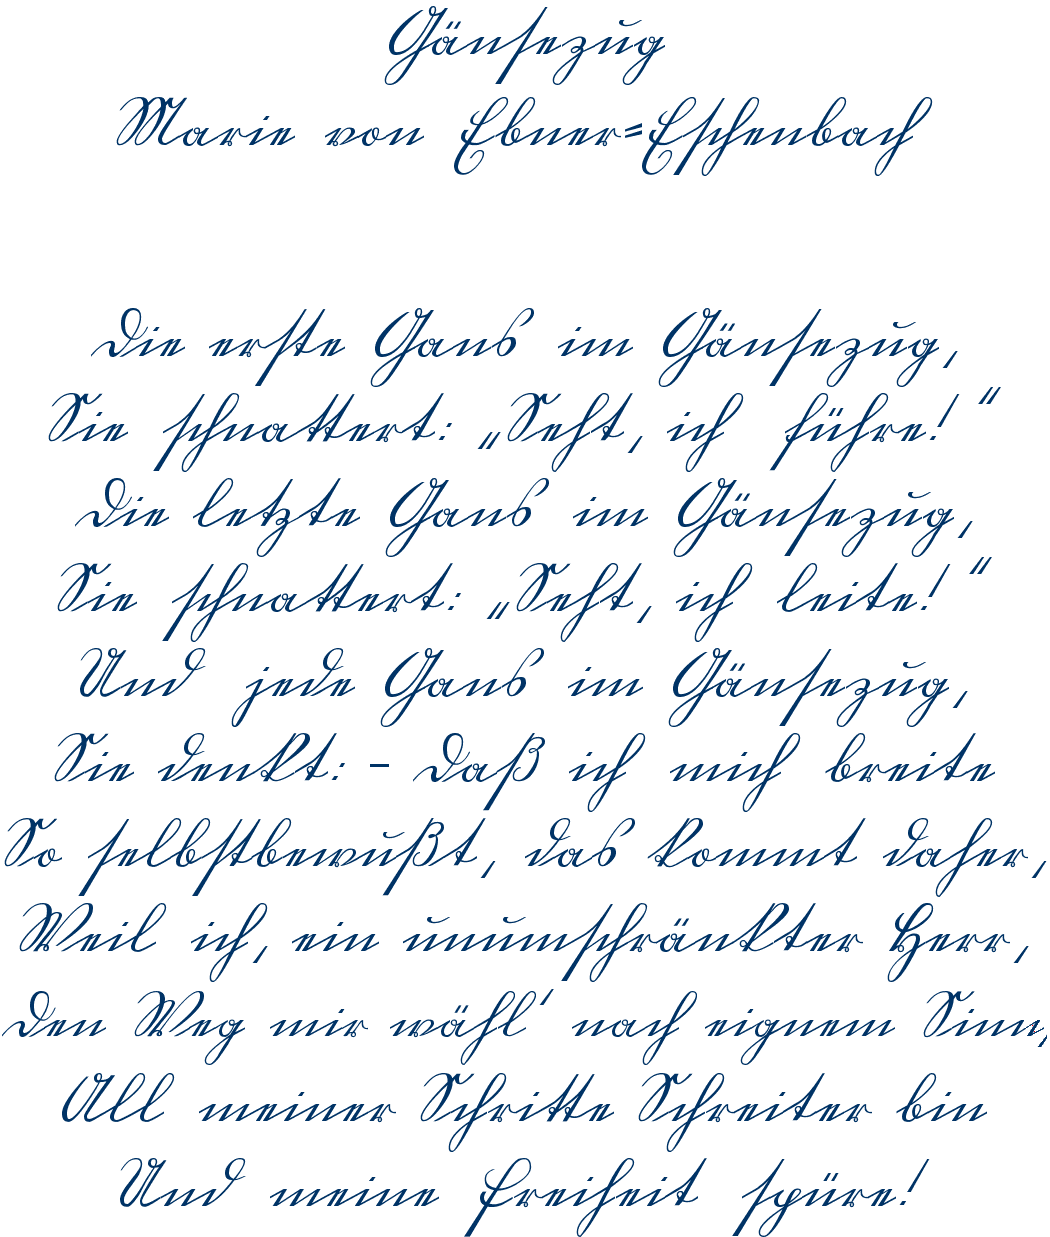 Gänsezug
Marie von Ebner=Eschenbach
Die erste Gans im Gänsezug,
Sie schnattert: „Seht, ich führe!“
Die letzte Gans im Gänsezug,
Sie schnattert: „Seht, ich leite!“
Und jede Gans im Gänsezug,
Sie denkt: – Daß ich mich breite
So selbstbewußt, das kommt daher,
Weil ich, ein unumschränkter Herr,
Den Weg mir wähl' nach eignem Sinn,
All meiner Schritte Schreiter bin
Und meine Freiheit spüre!